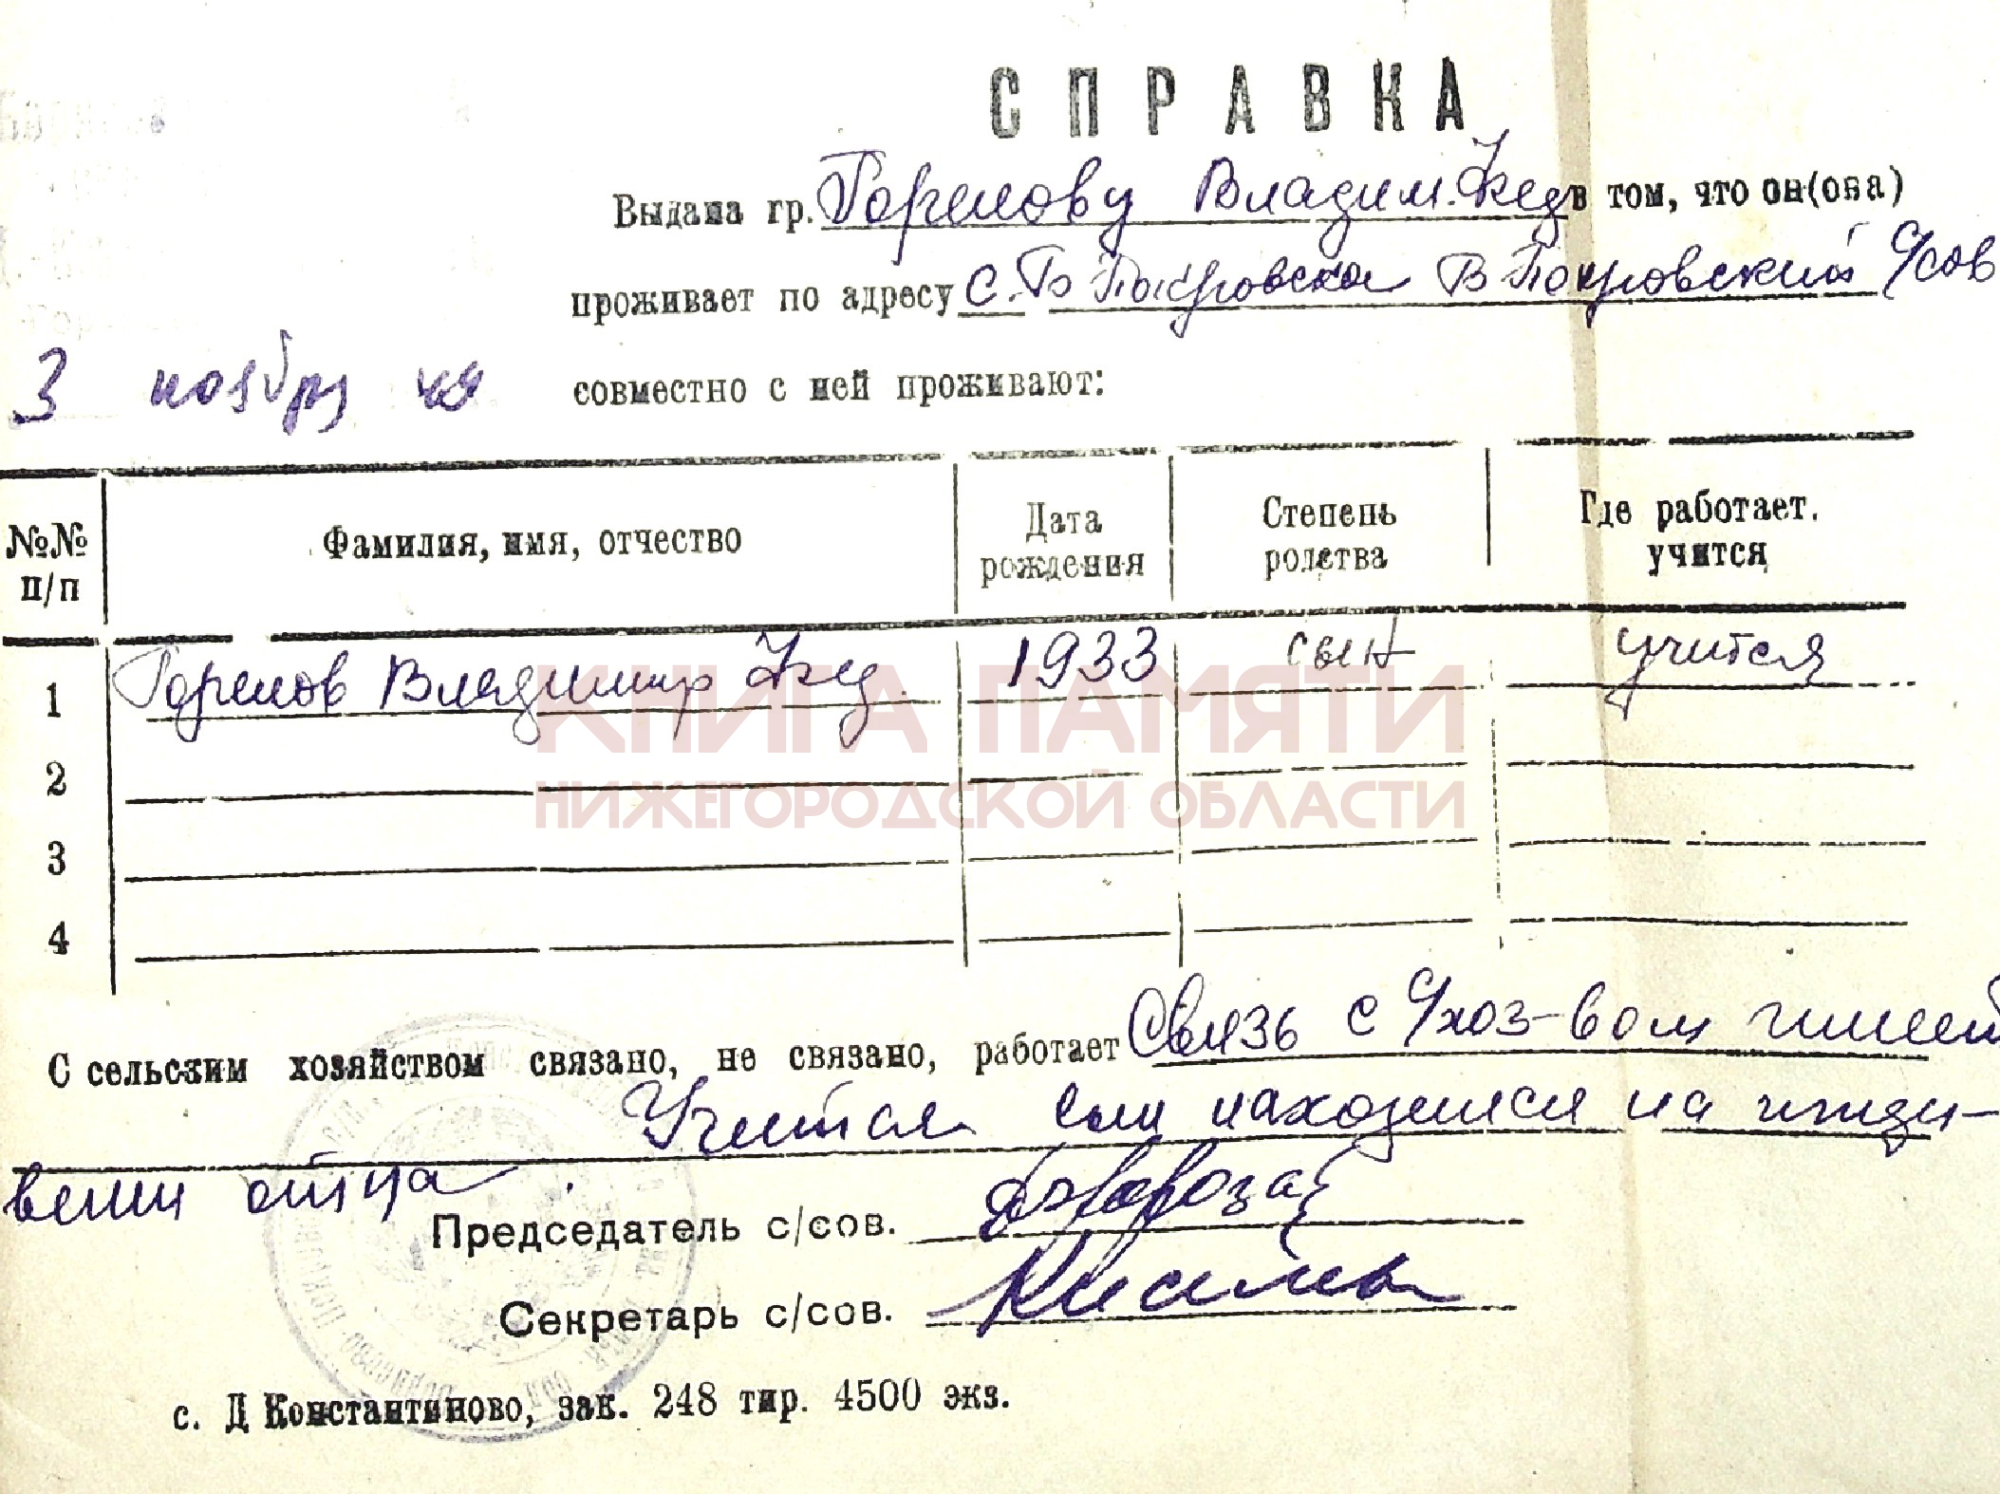 СПРАВКА
Выдана гр. Горелову Владим. Фед в том, что он(она)
проживает по адресу с. Б Покровска В Покровский с/сов
3 ноября 49
совместно с ней проживают:
№№ п/п Фамилия, имя, отчество Дата рождения Степень родства Где работает. учится
1 Горелов Владимир Фед. 1933 сын учится
2
3
4
КНИГА ПАМЯТИ
НИЖЕГОРОДСКОЙ ОБЛАСТИ
С сельским хозяйством связано, не связано, работает Связь с с/хоз-вом имеет
Учится сам находится на ижди-
вении отца.
Председатель с/сов.
Секретарь с/сов.
с. Д Константиново, зак. 248 тир. 4500 экз.